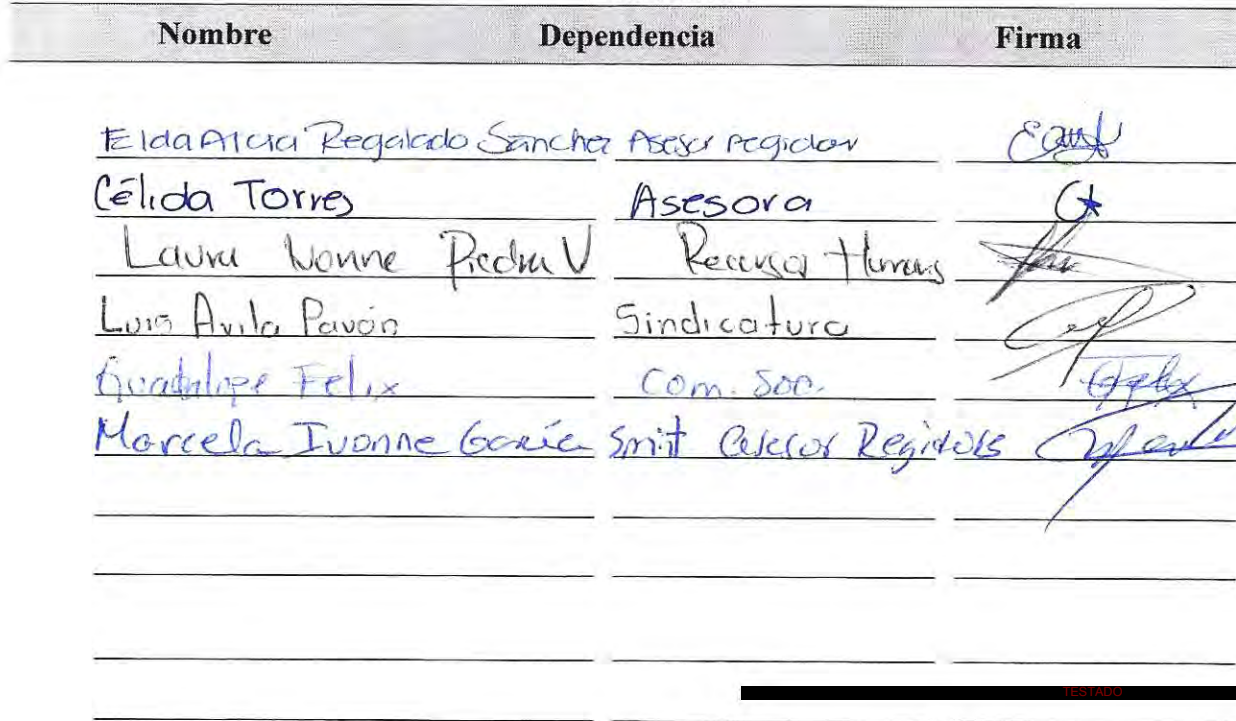 Nombre Dependencia Firma
Elda Alcia Regalado Sánchez Asesor regidor
Célida Torres Asesora
Laura Ivonne Piedra V Recursos Humanos
Luis Avila Pavón Sindicatura
Guadalupe Felix Com. Soc. GFelix
Marcela Ivonne García Smit asesor Regidores
TESTADO